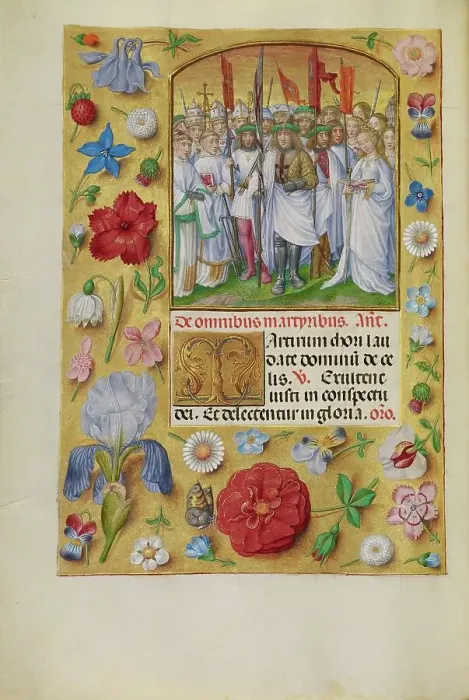 De omnibus martyribus. Añt.
Martirum chori lau
date dominū de ce
lis. V. Exultent
iusti in conspectu
dei. Et delectentur in gloria. oro.